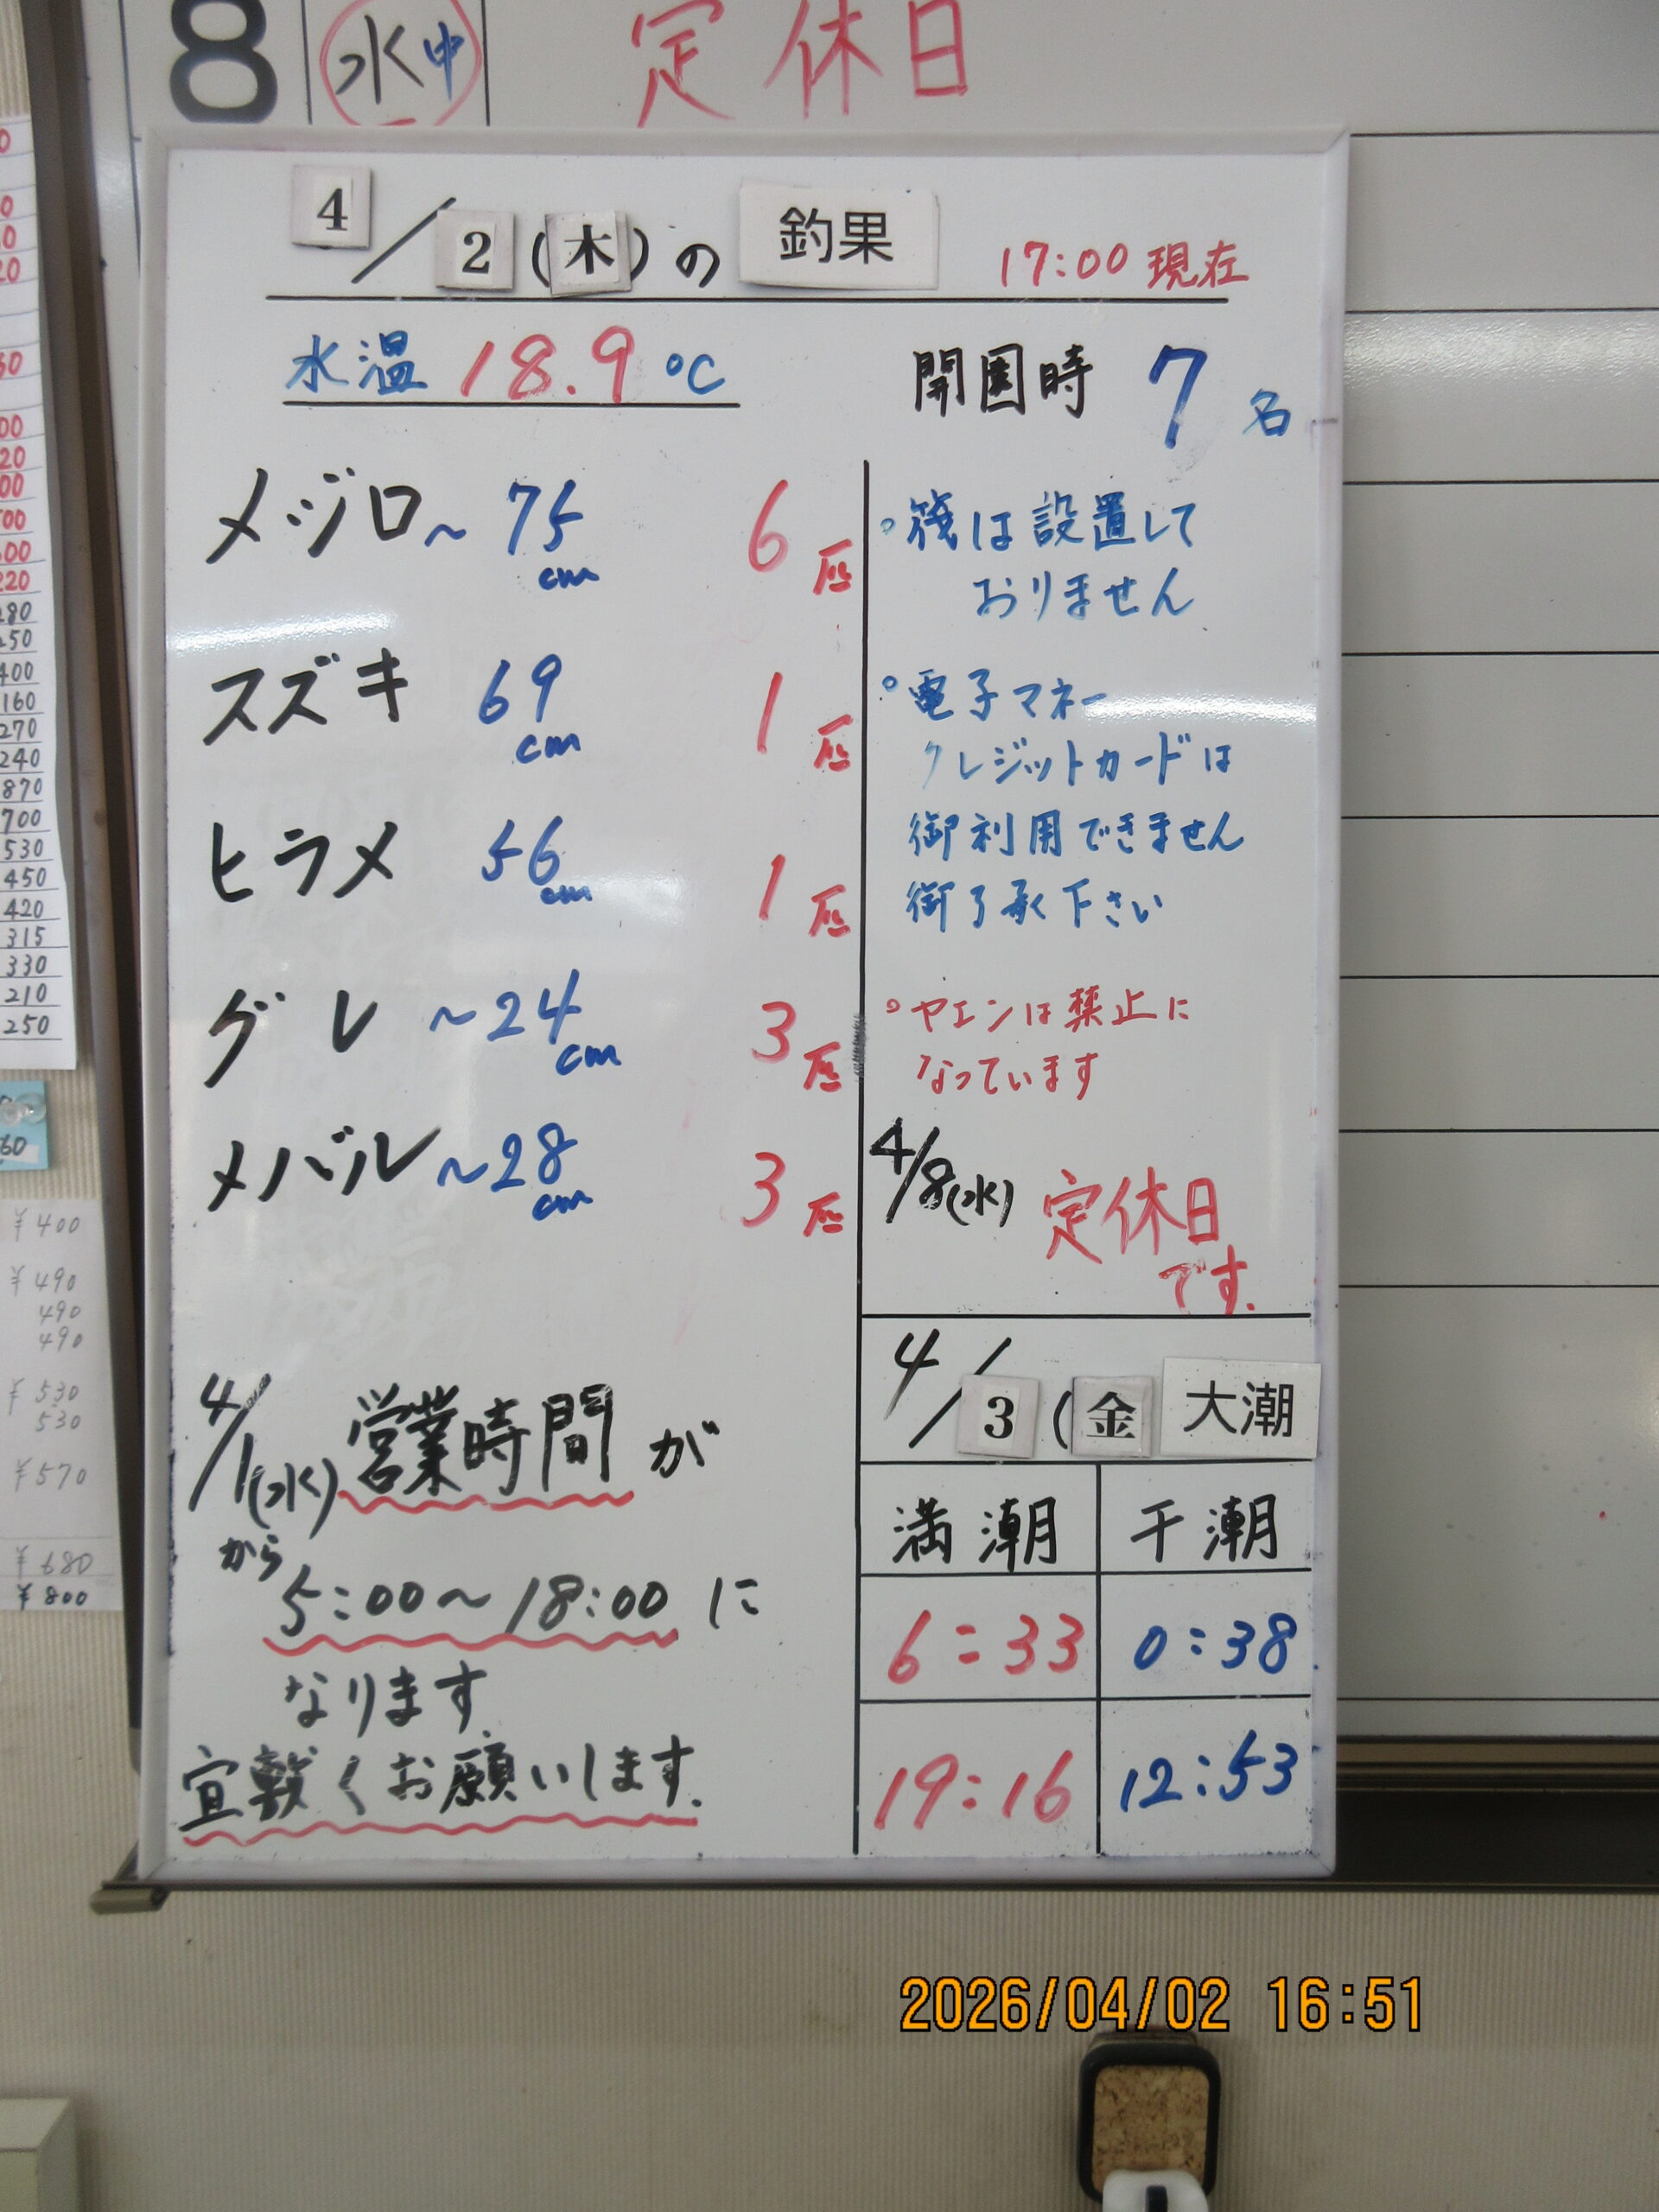 8 水 中 定休日
4/2(木)の 釣果 17:00 現在
水温 18.9 ℃
開園時 7名
メジロ ~75cm 6匹
スズキ 69cm 1匹
ヒラメ 56cm 1匹
グレ ~24cm 3匹
メバル ~28cm 3匹
4/1(水)から 営業時間が
5:00~18:00 に
なります
宜敷くお願いします.
。筏は設置して
おりません
。電子マネー
クレジットカードは
御利用できません
御了承下さい
。ヤエンは禁止に
なっています
4/8(水) 定休日
です.
4/3(金 大潮
満潮 干潮
6:33 0:38
19:16 12:53
280
250
400
160
270
240
870
700
530
450
420
315
330
210
250
60
¥400
¥490
490
490
¥530
530
¥570
¥680
¥800
2026/04/02 16:51